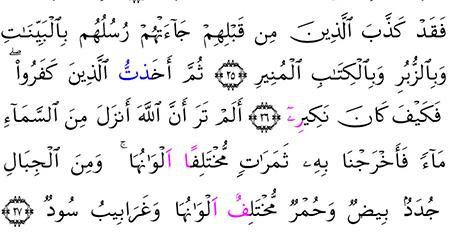 فَقَدْ كَذَّبَ ٱلَّذِينَ مِن قَبْلِهِمْ جَآءَتْهُمْ رُسُلُهُم بِٱلْبَيِّنَٰتِ
وَبِٱلزُّبُرِ وَبِٱلْكِتَٰبِ ٱلْمُنِيرِ ۝٢٥ ثُمَّ أَخَذتُّ ٱلَّذِينَ كَفَرُوا۟ ۖ
فَكَيْفَ كَانَ نَكِيرِۦٓ ۝٢٦ أَلَمْ تَرَ أَنَّ ٱللَّهَ أَنزَلَ مِنَ ٱلسَّمَآءِ
مَآءً فَأَخْرَجْنَا بِهِۦ ثَمَرَٰتٍ مُّخْتَلِفًا اَلْوَٰنُهَا ۚ وَمِنَ ٱلْجِبَالِ
جُدَدٌۢ بِيضٌ وَحُمْرٌ مُّخْتَلِفٌ اَلْوَٰنُهَا وَغَرَابِيبُ سُودٌ ۝٢٧